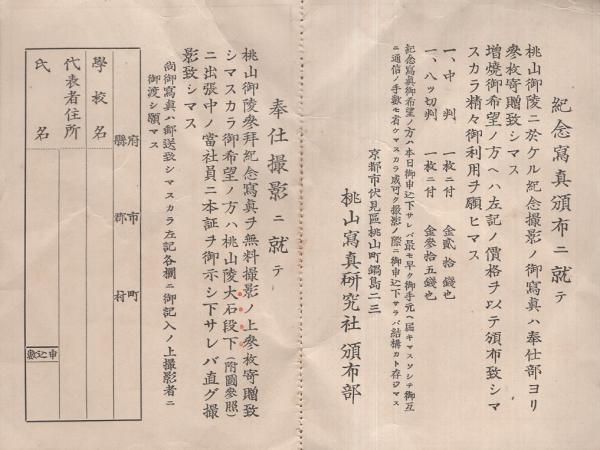 紀念寫真頒布ニ就テ
桃山御陵ニ於ケル紀念撮影ノ御寫真ハ奉仕部ヨリ
參枚寄贈致シマス
增燒御希望ノ方ヘハ左記ノ價格ヲ以テ頒布致シマ
スカラ精々御利用ヲ願ヒマス
一、中判 一枚ニ付 金貳拾錢也
一、八ッ切判 一枚ニ付 金參拾五錢也
紀念寫真御希望ノ方ハ本日御申込下サレバ最モ早ク御手元ヘ屆キマスソシテ御互
ニ通信ノ手數モ省ケマスカラ成可ク撮影ノ際ニ御申込下サラバ結構カト存ジマス
京都市伏見區桃山町鍋島二三
桃山寫真硏究社 頒布部
奉仕撮影ニ就テ
桃山御陵參拜紀念寫真ヲ無料撮影ノ上參枚寄贈致
シマスカラ御希望ノ方ハ桃山陵大石段下(附圖參照)
ニ出張中ノ當社員ニ本証ヲ御示シ下サレバ直グ撮
影致シマス
尚御寫真ハ郵送致シマスカラ左記各欄ニ御記入ノ上撮影者ニ
御渡シ願マス
府縣 市郡 町村
學校名
代表者住所
氏名
申込數